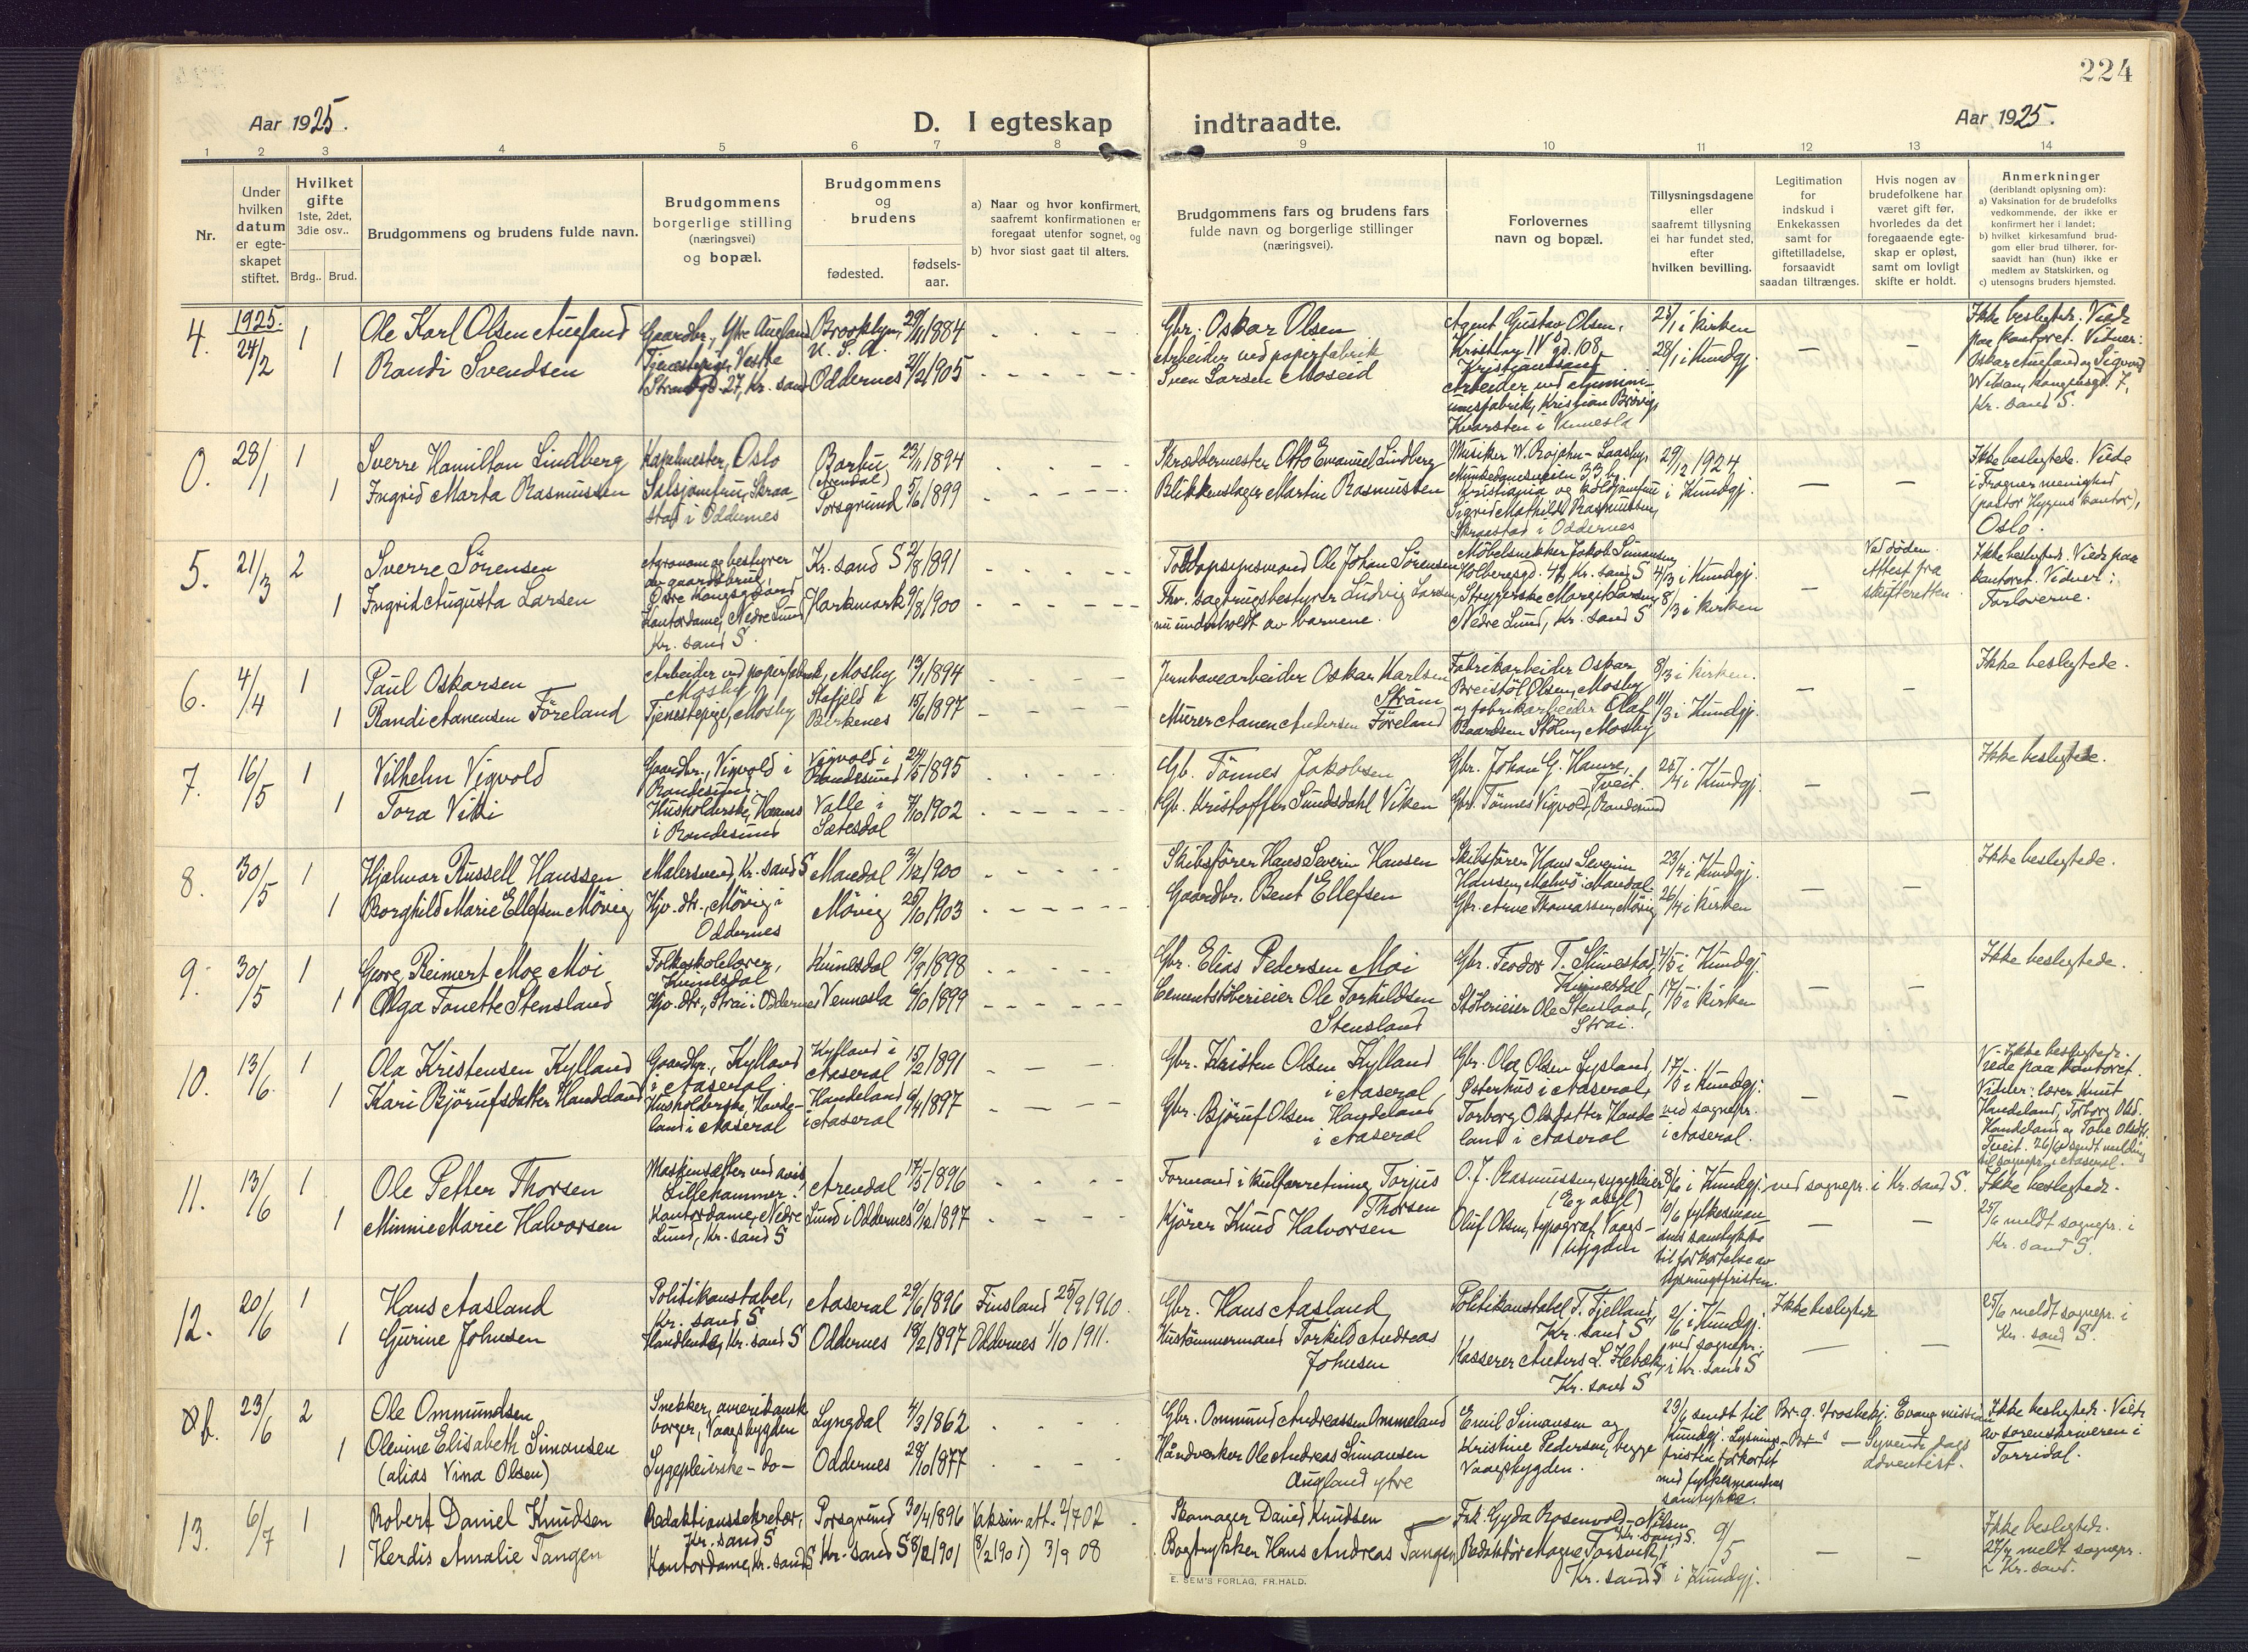 224
Aar 1925.
D. I egteskap indtraadte.
Aar 1925.
1 2 3 4 5 6 7 8 9 10 11 12 13 14
Nr.
Under
hvilken
datum
er egte-
skapet
stiftet.
Hvilket
gifte
1ste, 2det,
3die osv..
Brdg.. Brud.
Brudgommens og brudens fulde navn.
Brudgommens
borgerlige stilling
(næringsvei)
og bopæl.
Brudgommens
og
brudens
fødested.
fødsels-
aar.
a) Naar og hvor konfirmert,
saafremt konfirmationen er
foregaat utenfor sognet, og
b) hvor sidst gaat til alters.
Brudgommens fars og brudens fars
fulde navn og borgerlige stillinger
(næringsvei).
Forlovernes
navn og bopæl.
Tillysningsdagene
eller
saafremt tillysning
ei har fundet sted,
efter
hvilken bevilling.
Legitimation
for
indskud i
Enkekassen
samt for
giftetilladelse,
forsaavidt
saadan tiltrænges.
Hvis nogen av
brudefolkene har
været gift før,
hvorledes da det
foregaaende egte-
skap er opløst,
samt om lovligt
skifte er holdt.
Anmerkninger
(deriblandt oplysning om):
a) Vaksination for de brudefolks
vedkommende, der ikke er
konfirmert her i landet;
b) hvilket kirkesamfund brud-
gom eller brud tilhører, for-
saavidt han (hun) ikke er
medlem av Statskirken, og
c) utensogns bruders hjemsted.
1925.
4. 24/2 1
Ole Karl Olsen Augland
Gaardbr., Ytre Augland
Brooklyn, U. S. A. 29/11 1884
Gbr. Oskar Olsen
Agent Gustav Olsen,
Kristian IV gd. 108
Kristianssand
25/1 i kirken
1 Randi Svendsen
Tjenestepige, Vestre
Strandgd. 27, Kr. sand
Oddernes 21/2 1905
Arbeider ved papirfabrik
Sven Larsen Moseid
Arbeider ved Alumini-
umsfabrik, Kristian Brøvig,
Kvarsten i Vennesla
28/1 i Kundgj.
Ikke beslegtede. Viede
paa kontoret. Vidner:
Oskar Augland og Sigurd
Wilsen, Kongensgd. 7,
Kr. sand S.
0. 28/1 1
Sverre Hamilton Lindberg
Kapelmester, Oslo
Barbu
(Arendal) 23/1 1894
Skræddermester Otto Emanuel Lindberg
Musiker W. Rojahn-Laasby,
Munkedamsveien 33 b.
29/12 1924
1 Ingrid Marta Rasmussen
Salsjomfru, Skraa-
stad i Oddernes
Porsgrund 5/6 1899
Blikkenslager Martin Rasmussen
Kristiania og koldjomfru
Sigrid Mathilde Rasmussen,
Skraastad i Oddernes
i Kundgj.
Ikke beslegtede. Viede
i Frogner menighed
(pastor Hygens kontor),
Oslo.
5. 21/3 2
Sverre Sörensen
Agronom og bestyrer
av gaardsbruk,
Østre Kongsgaard
Kr. sand S 21/8 1891
Toldopsynsmand Ole Johan Sörensen
Möbelsnekker Jakob Simonsen,
Holbergsgd. 42, Kr. sand S
4/3 i Kundgj.
1 Ingrid Augusta Larsen
Kontordame, Nedre Lund
Kr. sand S.
Harkmark 9/8 1900
Fhv. sagbrugsbestyrer Ludvig Larsen
nu underholdt av barnene.
Strygerske Margit Larsen,
Nedre Lund, Kr. sand S
8/3 i kirken
Ved døden.
Attest fra
skifteretten.
Ikke beslegtede. Viede paa
kontoret. Vidner:
Forloverne.
6. 4/4 1
Paul Oskarsen
Arbeider ved papirfabrik,
Mosby
Mosby 13/1 1894
Jernbanearbeider Oskar Karlsen
Strüm
Fabrikarbeider Oskar
Breistöl Olsen, Mosby
8/3 i kirken.
1 Randi Aanensen Föreland
Tjenestepige, Mosby
Stafjeld i
Birkenes 15/6 1897
Murer Aanen Andersen Föreland
og fabrikarbeider Olaf
Baardsen Stölen, Mosby
11/3 i Kundgj.
Ikke beslegtede.
7. 16/5 1
Vilhelm Vigvold
Gaardbr., Vigvold i
Randesund.
Vigvold i
Randesund 24/5 1895
Gb. Tönnes Jakobsen
Gbr. Johan G. Hamre,
Tveit.
25/4 i Kundgj.
1 Tora Viki
Husholderske, Haanes
i Randesund
Valle i
Sætesdal 7/10 1902
Gb. Kristoffer Sundsdahl Viken
Gbr. Tönnes Vigvold, Randesund
Ikke beslegtede.
8. 30/5 1
Hjalmar Russell Hanssen
Malersvend, Kr. sand S
Mandal 3/12 1900
Skibsfører Hans Severin Hansen
Skibsfører Hans Severin
Hansen, Malmö i Mandal
23/4 i Kundgj.
1 Borghild Marie Ellefsen Mövig
Hjv. dtr., Mövig i
Oddernes
Mövig 25/10 1903
Gaardbr. Bent Ellefsen
Gbr. Arne Thomassen, Mövig
26/4 i kirken
Ikke beslegtede.
9. 30/5 1
Georg Reimert Moe Moi
Folkeskolelærer,
Kvinesdal
Kvinesdal 19/9 1898
Gbr. Elias Pedersen Moi
Gbr. Teodor T. Slimestad,
Kvinesdal
14/5 i Kundgj.
1 Olga Tonette Stensland
Hjv. dtr., Strai i Oddernes
Vennesla 6/10 1899
Cementstöberieier Ole Torkildsen
Stensland
Stöberieier Ole Stensland,
Strai.
17/5 i kirken
Ikke beslegtede.
10. 13/6 1
Ola Kristensen Kylland
Gaardbr., Kylland
i Aaseral.
Kylland i
Aaseral 15/2 1891
Gbr. Kristen Olsen Kylland
i Aaseral
Gbr. Ola Olsen Lysland,
Österhus i Aaseral,
17/5 i Kundgj.
1 Kari Björufsdatter Handeland
Husholderske, Hande-
land i Aaseral
Handeland
i Aaseral 6/4 1897
Gbr. Björuf Olsen Handeland
i Aaseral
Torborg Olsdatter Hande
land i Aaseral
ved sognepr.
i Aaseral.
Ikke beslegtede.
Viede paa kontoret.
Vidner: lærer Knut
Handeland, Torborg Olsd.
Handeland og Tobe Olsdtr.
Tveit. 26/6 sendt melding
til sognepr. i Aaseral.
11. 13/6 1
Ole Petter Thorsen
Maskinsætter ved avis,
Lillehammer.
Arendal 17/5 1896
Formand i kulforretning Torjus
Thorsen
O. J. Rasmussen, sygepleier
8/6 i Kundgj. ved sognepr. i Kr. sand S.
1 Minnie Marie Halvorsen
Kontordame, Nedre
Lund, Kr. sand S
Lund i Oddernes 10/12 1897
Kjörer Knud Halvorsen
Oluf Olsen, typograf, Vaags-
bygden
10/6 fylkesman-
dens samtykke
til forkortelse av
lysningsfristen.
Ikke beslegtede.
25/6 meldt sognepr. i
Kr. sand S.
12. 20/6 1
Hans Aasland
Politikonstabel,
Kr. sand S
Aaseral 29/6 1896
Finsland 25/9 1910.
Gbr. Hans Aasland
Politikonstabel T. Fjelland,
Kr. sand S
2/6 i Kundgj.
Ikke beslegtede
1 Gurine Johnsen
Handlende, Kr. sand S
Oddernes 18/2 1897
Oddernes 1/10 1911.
Hustömmermand Torkild Andreas
Johnsen
Kasserer Anders L. Hebæk,
Kr. sand S
ved sognepr.
i Kr. sand S
25/6 meldt sognepr. i
Kr. sand S.
23/6 2
Ole Ommundsen
Snekker, amerikansk
borger, Vaagsbygden
Lyngdal 4/3 1862
Gbr. Ommund Andreassen Ommeland
Emil Simonsen og
23/6 sendt til
Kundgj. Lysnings-
1 Olevine Elisabeth Simonsen
(alias Vina Olsen)
Sygepleierske -do-
Oddernes 28/10 1877
Håndverker Ole Andreas Simonsen
Augland ytre
Kristine Pedersen, begge
Vaagsbygden.
fristen forkortet
med fylkesmandens
samtykke.
Syvende dags
adventist.
Ikke beslegtede. Viede
av sorenskriveren i
Torridal.
13. 6/7 1
Robert Daniel Knudsen
Redaktionssekretær,
Kr. sand S
Porsgrund 30/4 1896
Vaksin. att. 2/7 02
Skomager David Knudsen
Frk. Gyda Rosenvold-Nilsen
Kr. sand S.
9/5
1 Herdis Amalie Tangen
Kontordame, Kr. sand S
Kr. sand S 8/2 1901
(8/2 1901) 3/9 08
Bogtrykker Hans Andreas Tangen
Redaktör Magne Torsvik,
Kr. sand S
i Kundgj.
Ikke beslegtede.
27/7 meldt sognepr.
i Kr. sand.
E. SEM'S FORLAG, FR.HALD.